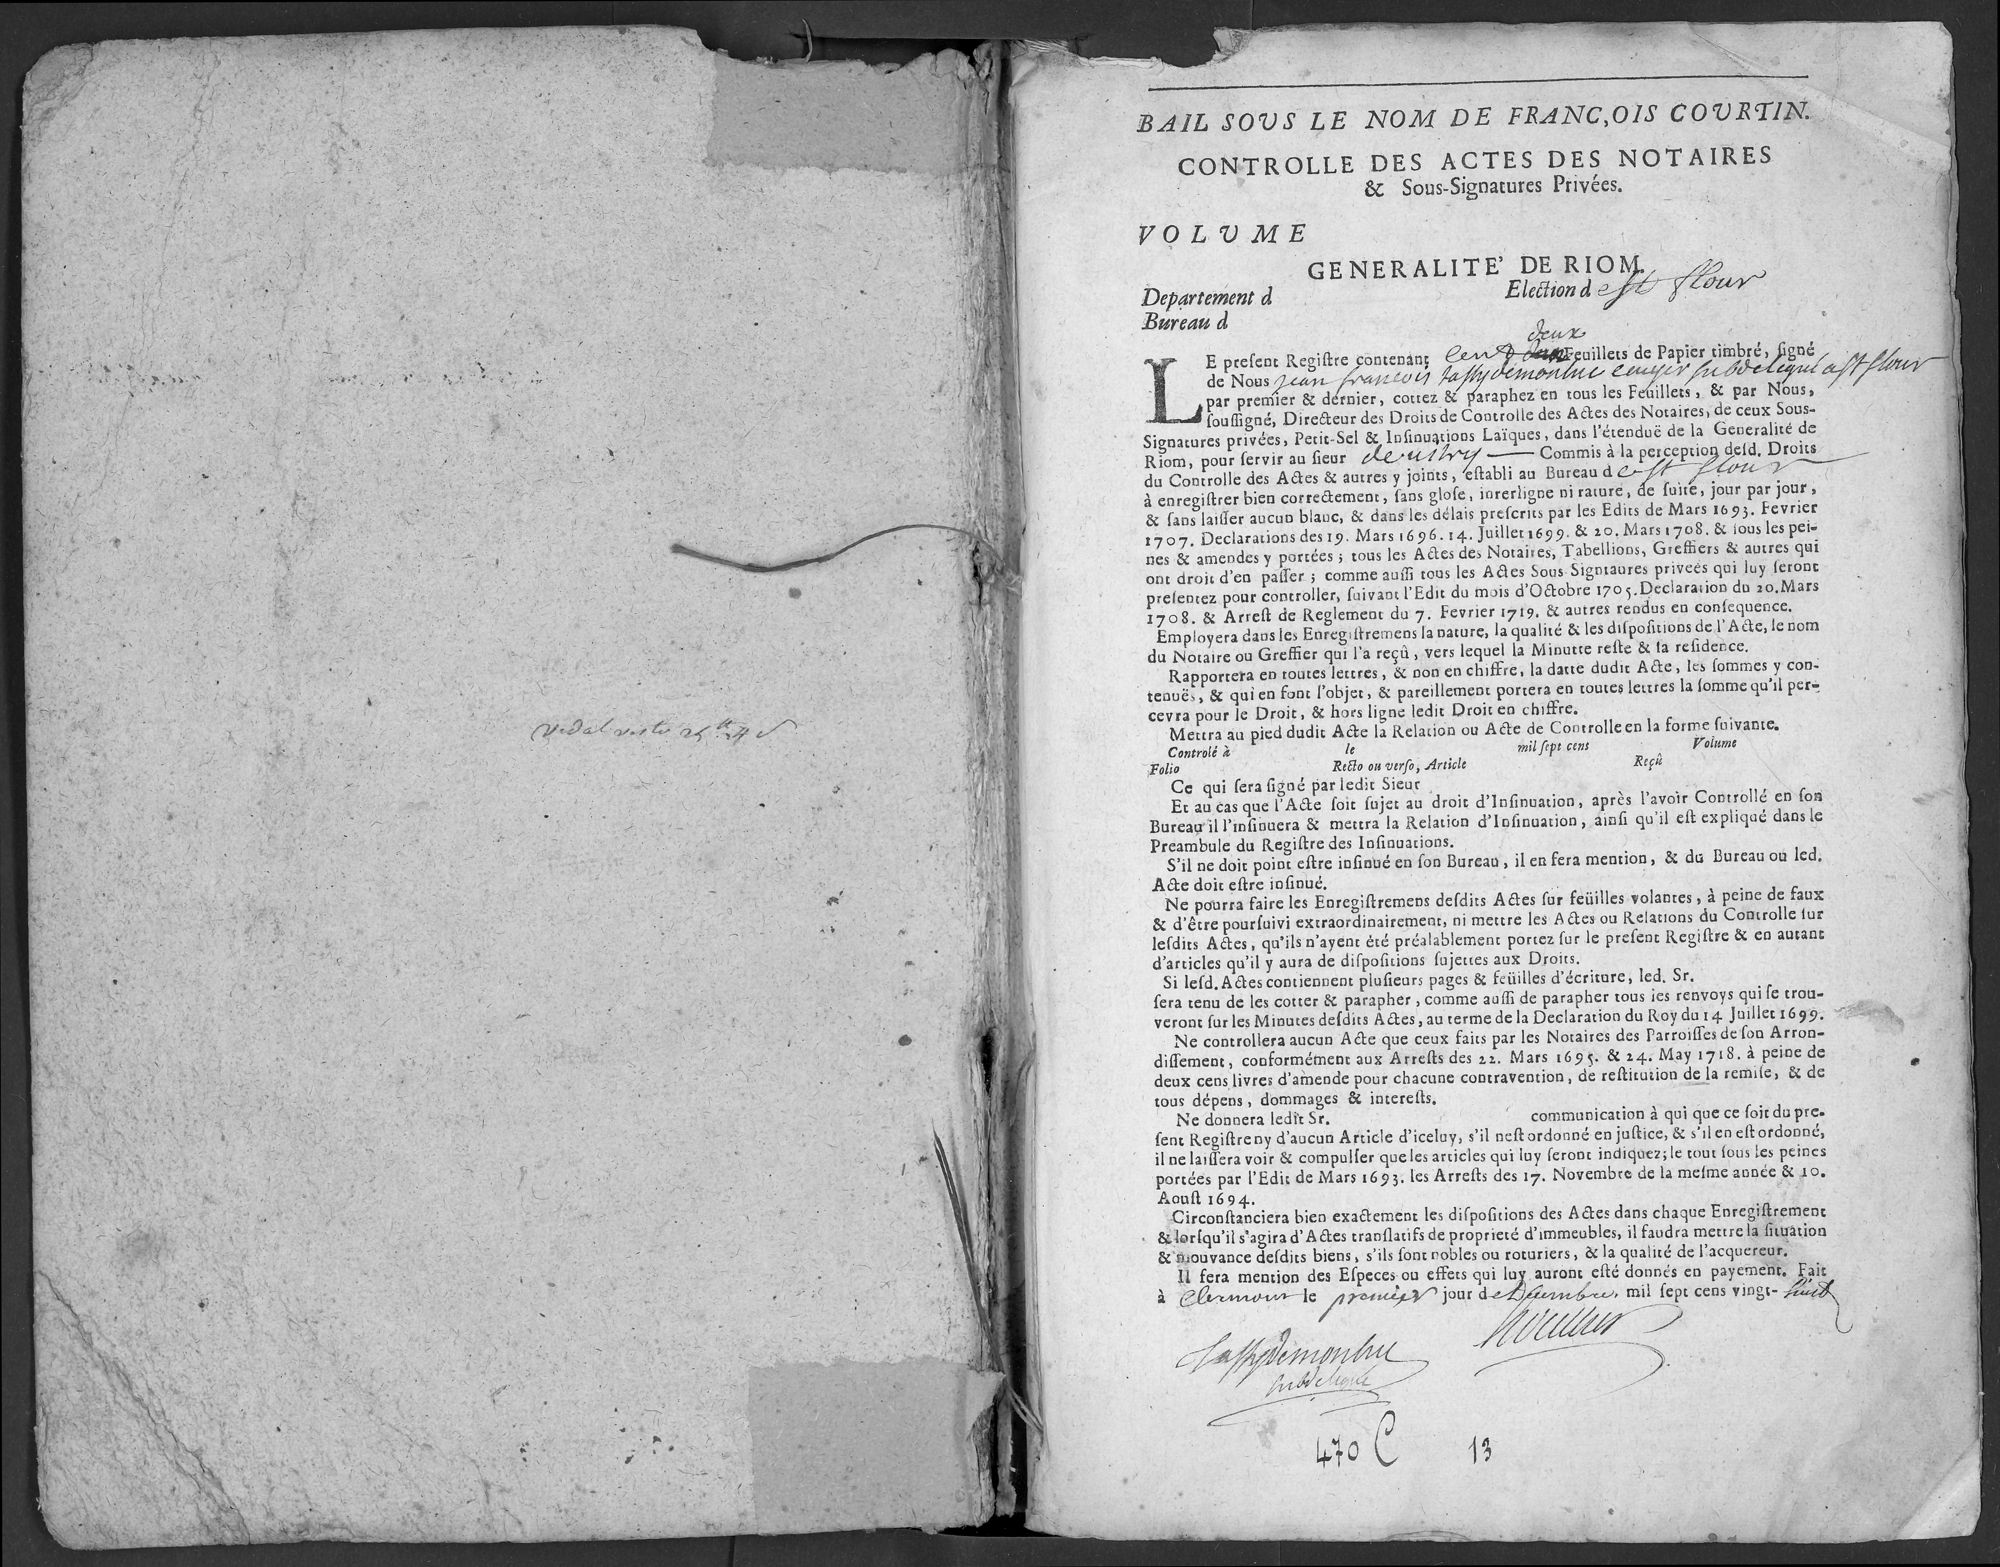 vidal reste 25tt 4d
BAIL SOUS LE NOM DE FRANC,OIS COURTIN.
CONTROLLE DES ACTES DES NOTAIRES
& Sous-Signatures Privées.
VOLUME
GENERALITE' DE RIOM.
Departement d Election de st flour
Bureau d
deux
LE preſent Regiſtre contenant cent Feuillets de Papier timbré, ſigné
de Nous jean francois tassy demontluc ecuyer subdelegué a st flour
par premier & dernier, cottez & paraphez en tous les Feuillets, & par Nous,
ſouſſigné, Directeur des Droits de Controlle des Actes des Notaires, de ceux Sous-
Signatures privées, Petit-Sel & Inſinuations Laïques, dans l'étenduë de la Generalité de
Riom, pour ſervir au ſieur — Commis à la perception deſd. Droits
du Controlle des Actes & autres y joints, eſtabli au Bureau de st flour
à enregiſtrer bien correctement, ſans gloſe, inrerligne ni rature, de ſuite, jour par jour,
& ſans laiſſer aucun blanc, & dans les délais preſcrits par les Edits de Mars 1693. Fevrier
1707. Declarations des 19. Mars 1696. 14. Juillet 1699. & 20. Mars 1708. & ſous les pei-
nes & amendes y portées; tous les Actes des Notaires, Tabellions, Greffiers & autres qui
ont droit d'en paſſer; comme auſſi tous les Actes Sous Signtaures priveés qui luy ſeront
preſentez pour controller, ſuivant l'Edit du mois d'Octobre 1705. Declaration du 20. Mars
1708. & Arreſt de Reglement du 7. Fevrier 1719. & autres rendus en conſequence.
Employera dans les Enregiſtremens la nature, la qualité & les diſpoſitions de l'Acte, le nom
du Notaire ou Greffier qui l'a reçû, vers lequel la Minutte reſte & ſa reſidence.
Rapportera en toutes lettres, & non en chiffre, la datte dudit Acte, les ſommes y con-
tenuës, & qui en font l'objet, & pareillement portera en toutes lettres la ſomme qu'il per-
cevra pour le Droit, & hors ligne ledit Droit en chiffre.
Mettra au pied dudit Acte la Relation ou Acte de Controlle en la forme ſuivante.
Controlé à le mil ſept cens Volume
Folio Recto ou verſo, Article Reçû
Ce qui ſera ſigné par ledit Sieur
Et au cas que l'Acte ſoit ſujet au droit d'Inſinuation, après l'avoir Controllé en ſon
Bureau il l'inſinuera & mettra la Relation d'Inſinuation, ainſi qu'il eſt expliqué dans le
Preambule du Regiſtre des Inſinuations.
S'il ne doit point eſtre inſinué en ſon Bureau, il en fera mention, & du Bureau ou led.
Acte doit eſtre inſinué.
Ne pourra faire les Enregiſtremens deſdits Actes ſur feüilles volantes, à peine de faux
& d'être pourſuivi extraordinairement, ni mettre les Actes ou Relations du Controlle ſur
leſdits Actes, qu'ils n'ayent été préalablement portez ſur le preſent Regiſtre & en autant
d'articles qu'il y aura de diſpoſitions ſujettes aux Droits.
Si leſd. Actes contiennent pluſieurs pages & feüilles d'écriture, led. Sr.
ſera tenu de les cotter & parapher, comme auſſi de parapher tous les renvoys qui ſe trou-
veront ſur les Minutes deſdits Actes, au terme de la Declaration du Roy du 14 Juillet 1699.
Ne controllera aucun Acte que ceux faits par les Notaires des Parroiſſes de ſon Arron-
diſſement, conformément aux Arreſts des 22. Mars 1695. & 24. May 1718. à peine de
deux cens livres d'amende pour chacune contravention, de reſtitution de la remiſe, & de
tous dépens, dommages & intereſts.
Ne donnera ledit Sr. communication à qui que ce ſoit du pre-
ſent Regiſtre ny d'aucun Article d'iceluy, s'il neſt ordonné en juſtice, & s'il en eſt ordonné,
il ne laiſſera voir & compulſer que les articles qui luy ſeront indiquez; le tout ſous les peines
portées par l'Edit de Mars 1693. les Arreſts des 17. Novembre de la meſme année & 10.
Aouſt 1694.
Circonſtanciera bien exactement les diſpoſitions des Actes dans chaque Enregiſtrement
& lorſqu'il s'agira d'Actes tranſlatifs de proprieté d'immeubles, il faudra mettre la ſituation
& mouvance deſdits biens, s'ils ſont nobles ou roturiers, & la qualité de l'acquereur.
Il fera mention des Eſpeces ou effets qui luy auront eſté donnés en payement. Fait
à Clermont le premier jour de Decembre, mil ſept cens vingt-huit
Tassy demontluc
subdelegué
470 C 13